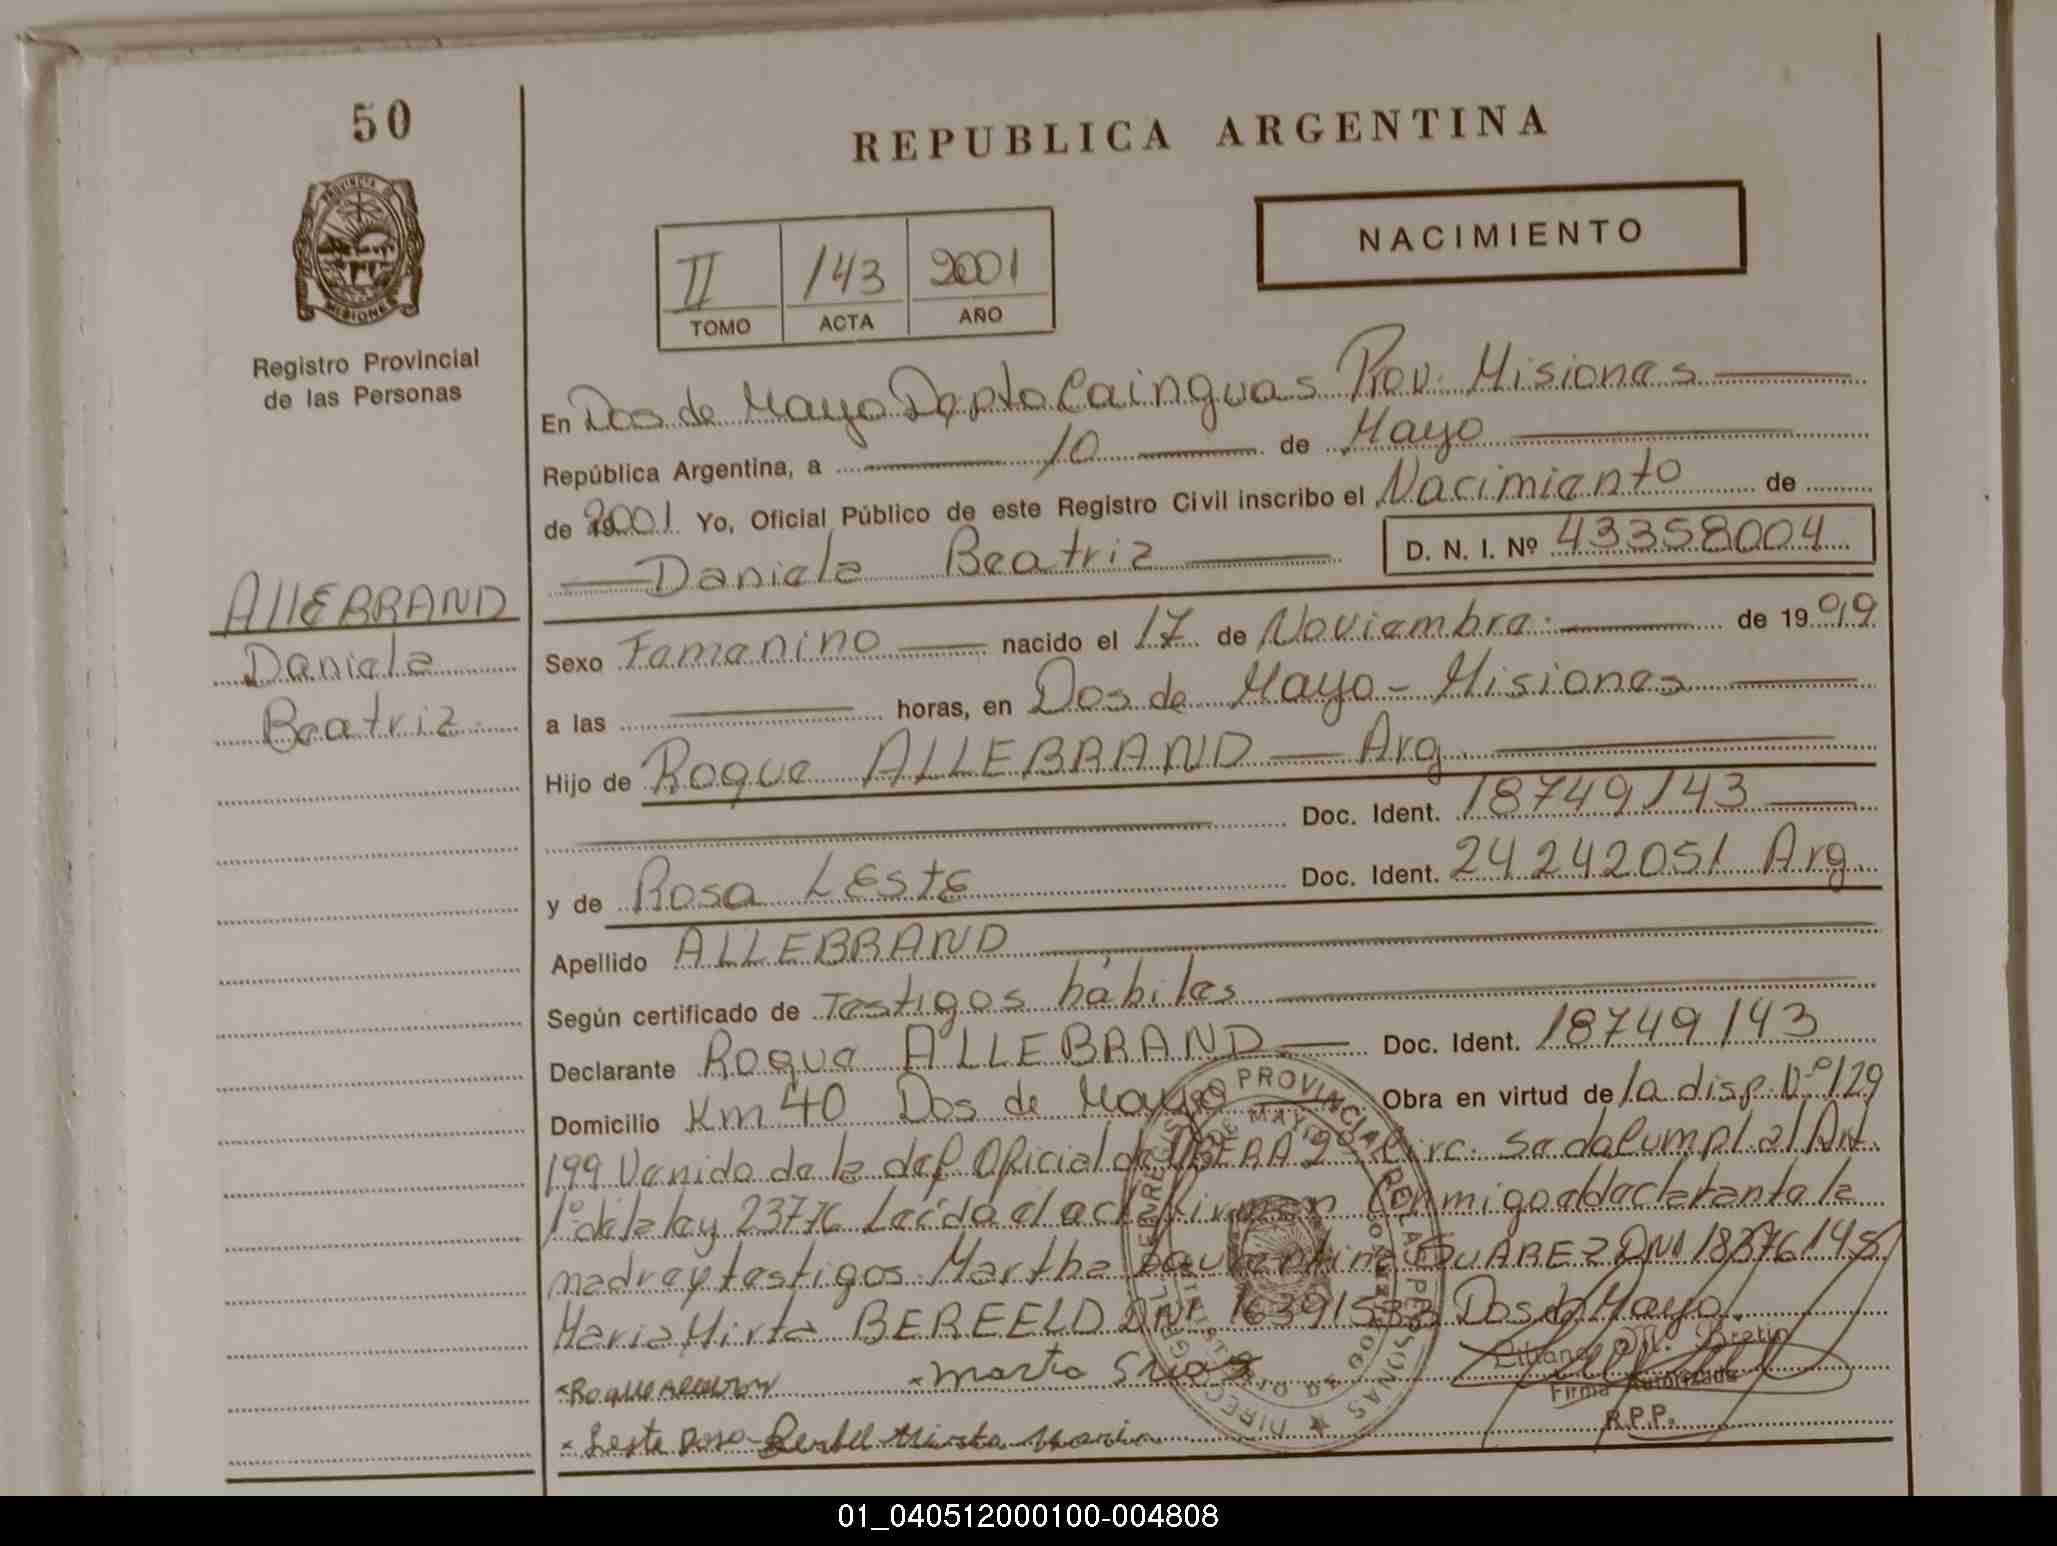 50
REPUBLICA ARGENTINA
NACIMIENTO
II /43 2001
TOMO ACTA AÑO
Registro Provincial
de las Personas
En Dos de Mayo Depto Cainguas Prov. Misiones
República Argentina, a 10 de Mayo
de 2001 Yo, Oficial Público de este Registro Civil inscribo el Nacimiento de
Daniela Beatriz D. N. I. Nº 43358004
ALLEBRAND
Daniela
Beatriz
Sexo Femenino nacido el 17 de Noviembre de 1999
a las horas, en Dos de Mayo - Misiones
Hijo de Roque ALLEBRAND Arg.
Doc. Ident. 18749143
y de Rosa LESTE Doc. Ident. 24242051 Arg.
Apellido ALLEBRAND
Según certificado de Testigos hábiles
Declarante Roque ALLEBRAND Doc. Ident. 18749143
Domicilio Km 40 Dos de Mayo Obra en virtud de la disp. Nº 129
199 Venido de la def Oficial de OBERA 2º Circ. Se da Cumpl. al Art.
1º de la ley 23776 Leída el acta firman Conmigo el declarante la
madre y testigos Martha SUAREZ DNI 18376145
Maria Mirta BEREELD DNI 16391533 Dos de Mayo.
Roque
Marta
Leste Rosa Mirta Maria
Liliana M. Bretin
Firma Autorizada
R.P.P.
PROVINCIA DE MISIONES
01_040512000100-004808